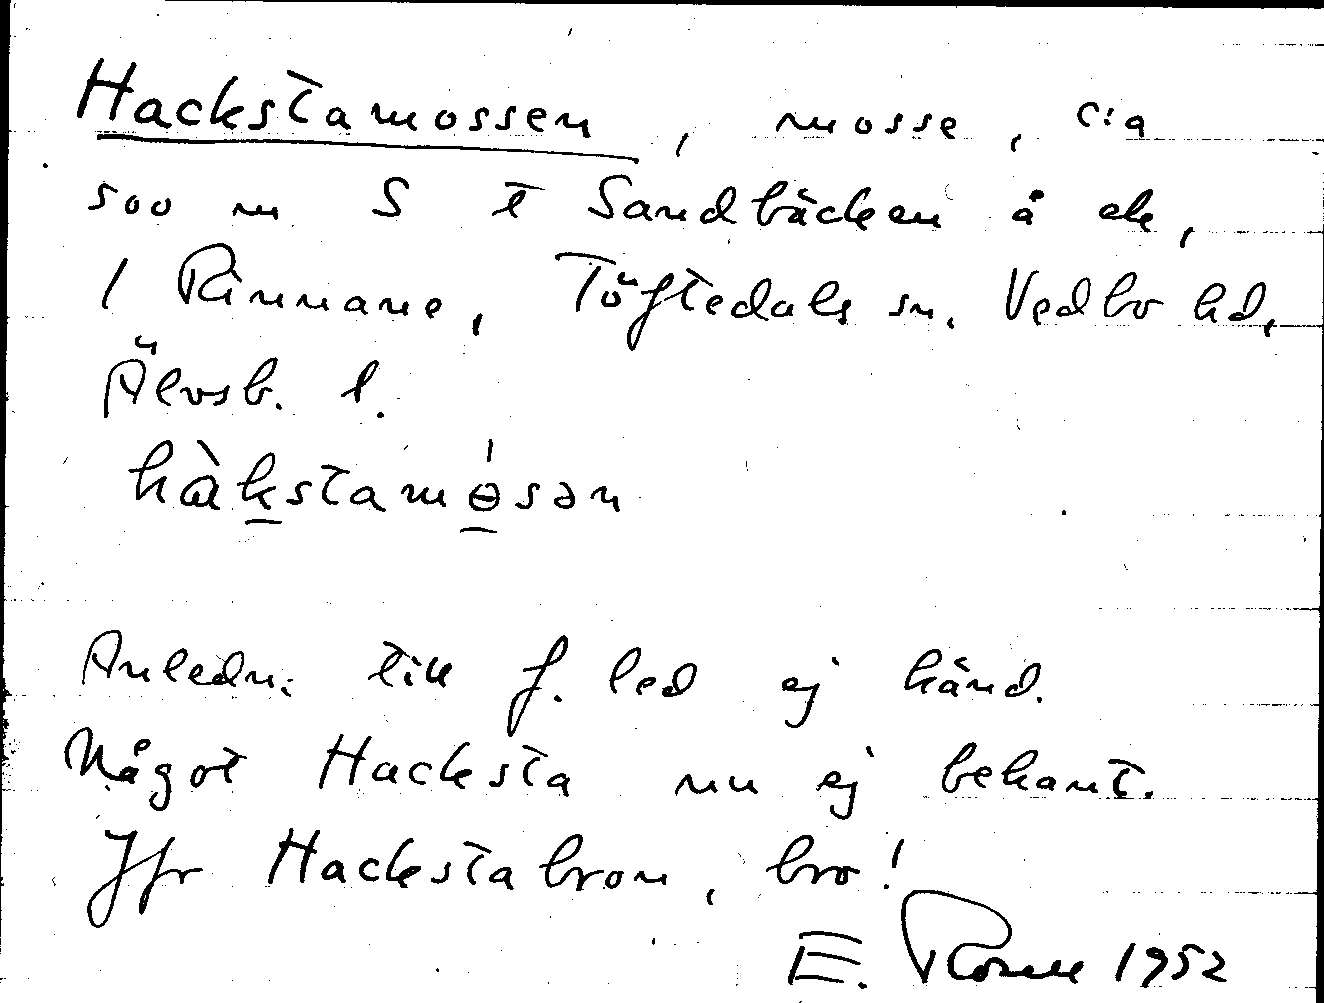 Hackstamossen, mosse, c:a
500 m S t Sandbäcken å ek,
1 Rännane, Töftedals sn. Vedbo hd,
Älvsb. l.
hàkstamɵ́sən
Anledn. till f. led ej känd.
Något Hacksta nu ej bekant.
Jfr Hackstabron, bro!
E. 1952